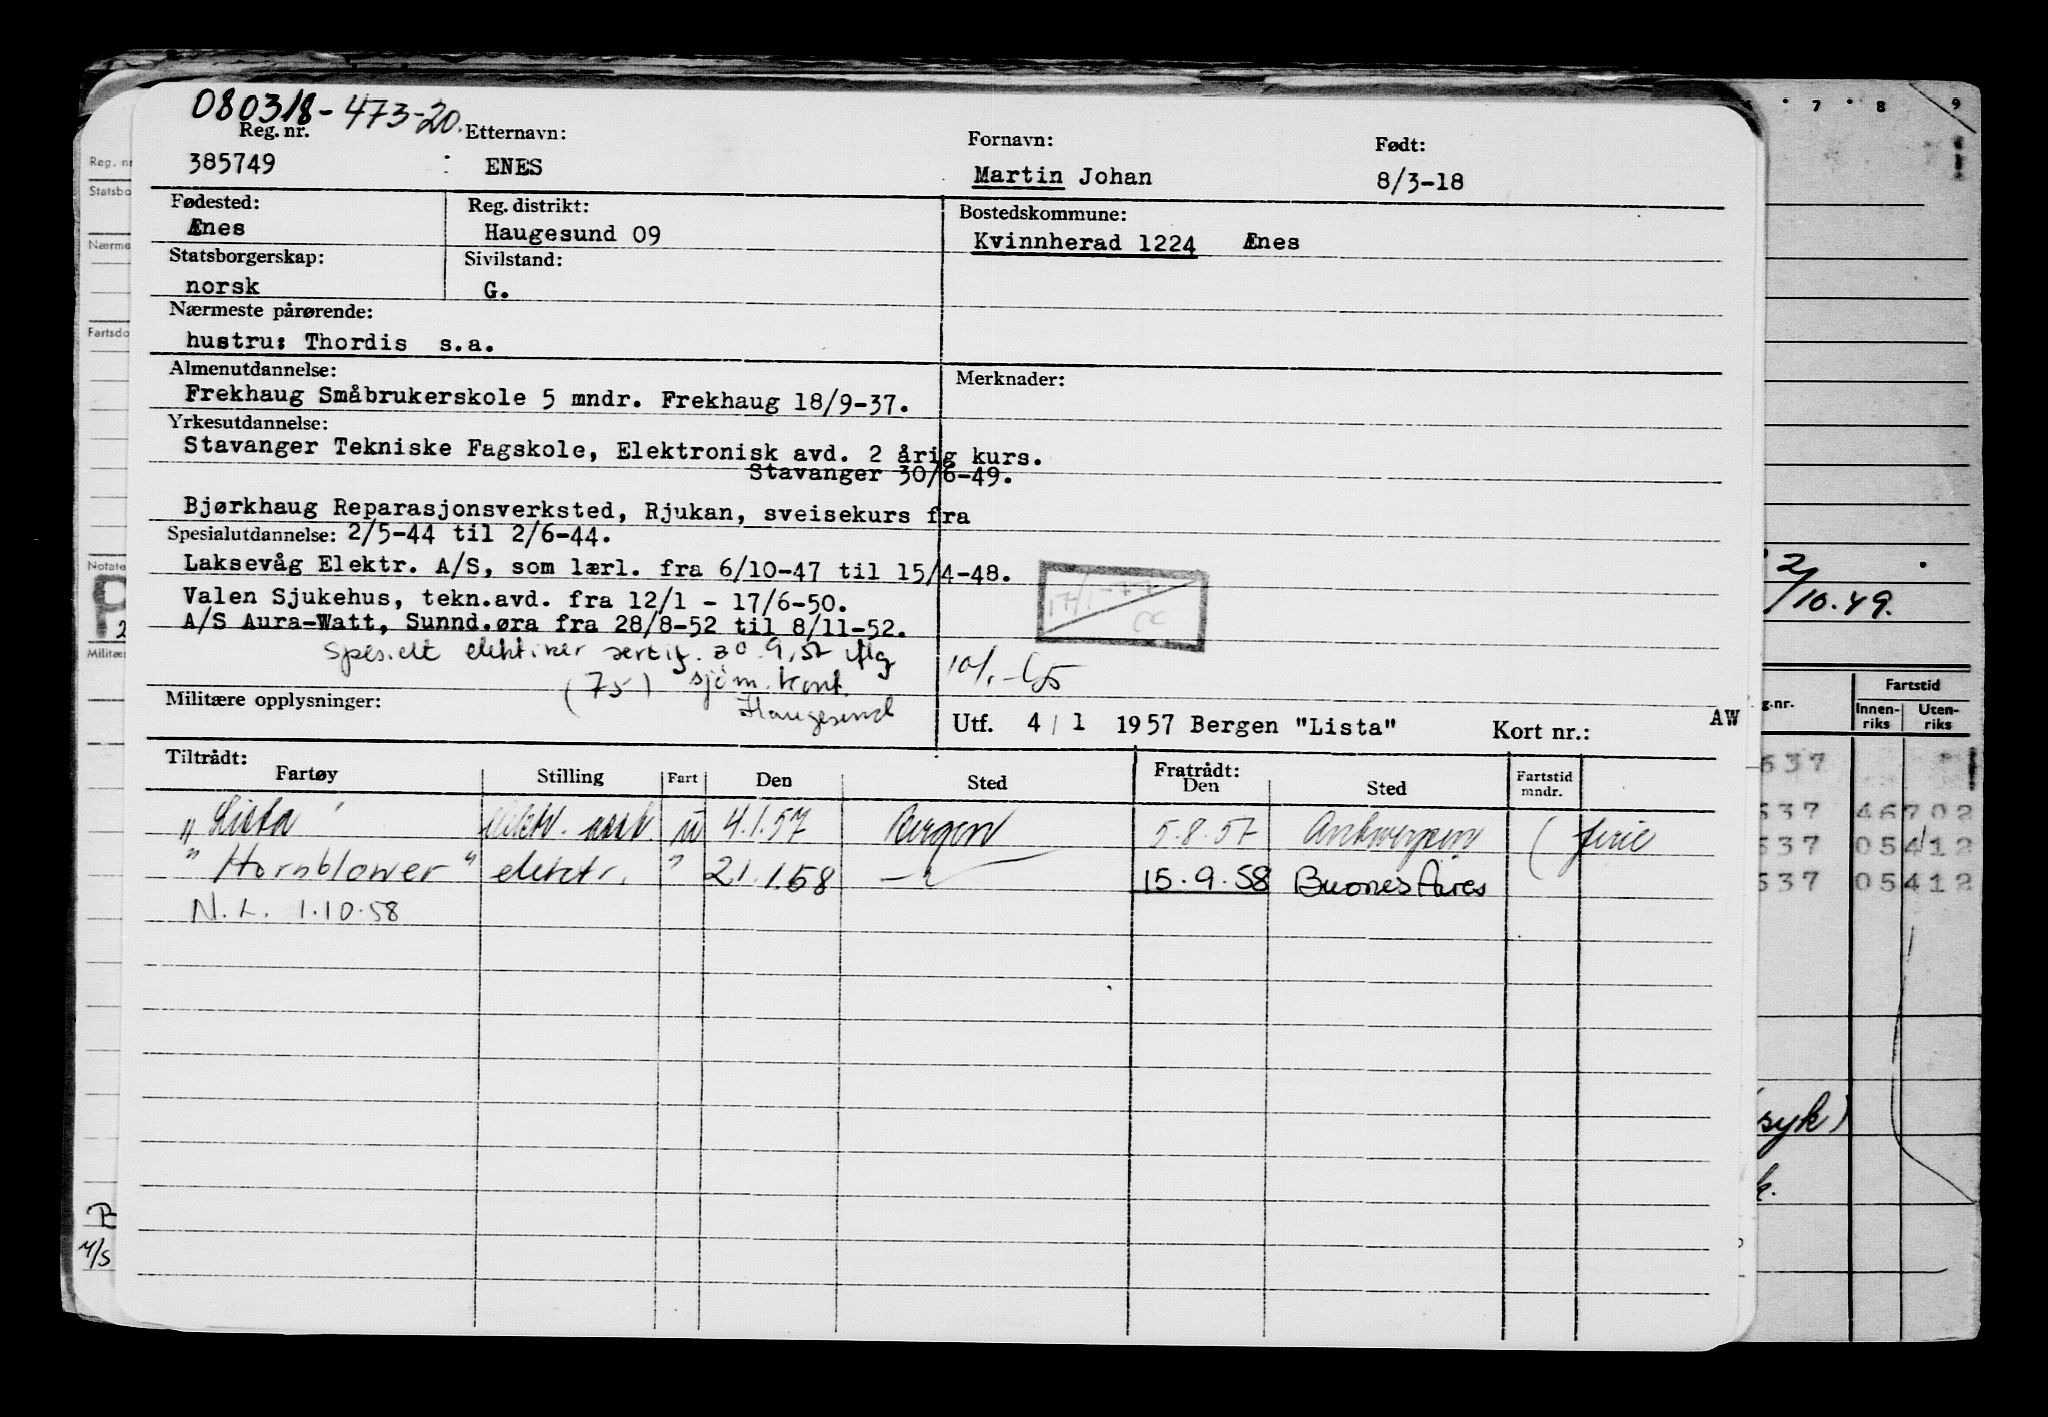 080318-473-20.
Reg. nr. Etternavn: Fornavn: Født:
385749 ENES Martin Johan 8/3-18
Fødested: Reg. distrikt: Bostedskommune:
Ænes Haugesund 09 Kvinnherad 1224 Ænes
Statsborgerskap: Sivilstand:
norsk G.
Nærmeste pårørende:
hustru: Thordis s.a.
Almenutdannelse: Merknader:
Frekhaug Småbrukerskole 5 mndr. Frekhaug 18/9-37.
Yrkesutdannelse:
Stavanger Tekniske Fagskole, Elektronisk avd. 2 årig kurs.
Stavanger 30/6-49.
Bjørkhaug Reparasjonsverksted, Rjukan, sveisekurs fra
Spesialutdannelse: 2/5-44 til 2/6-44.
Laksevåg Elektr. A/S, som lærl. fra 6/10-47 til 15/4-48.
Valen Sjukehus, tekn.avd. fra 12/1 - 17/6-50.
A/S Aura-Watt, Sunnd.øra fra 28/8-52 til 8/11-52.
Spesielt elektriker sertif. 30.9.57 iflg
(75) sjøm. kont.
Haugesund
Militære opplysninger:
Utf. 4/1 1957 Bergen "Lista" Kort nr.: AW
Tiltrådt: Fratrådt:
Fartøy Stilling Fart Den Sted Den Sted Fartstid mndr.
"Lista" elektr. asst. u 4.1.57 Bergen 5.8.57 Antwerpen (ferie
"Hornblower" elektr. " 21.1.58 15.9.58 Buones Aires
N.L. 1.10.58
Reg. nr
Statsbo
Nærme
Fartsdo
Notate
P
2
Militær
P
M/S
7 8 9
2/10.49.
g.nr. Fartstid
Innenriks Utenriks
637
537 46702
537 05412
537 05412
syk)
k.